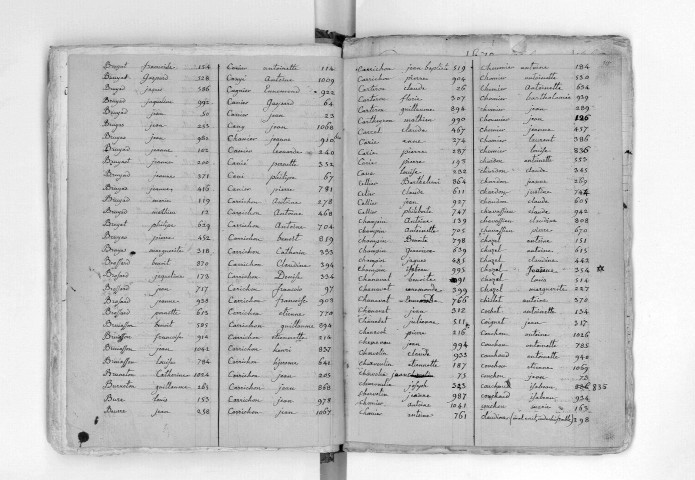 Bruyat françoise 124
Bruyat Gaspard 528
Bruyas jaques 586
Bruyas jaqueline 992
Bruyas jean 50
Bruyas jean 253
Bruyas jean 962
Bruyas jeanne 102
Bruyat jeanne 200
Bruyas jeanne 371
Bruyas jeanne 416
Bruyas marie 119
Bruyas mathieu 12
Bruyat philipe 629
Bruyas pierre 452
Bruyas marguerite 318
Brossard benoit 870
Brossard jaqueline 173
Brossard jean 717
Brossard jeanne 938
Brossard ponette 613
Bruiasson benoit 505
Bruiasson françoise 914
Bruiasson jean 1041
Bruiasson louise 784
Bruneton Catherine 1024
Burneton guillaume 263
Bure louis 153
Burre jean 258
Canier antoinette 114
Canpi Antoine 1009
Cagnier Ennemond 922
Canier Gaspard 64
Canier jean 23
Cany jean 1068
Chancier jeanne 910
Canier leonarde 240
Canié pernette 352
Cani philipe 67
Canier pierre 781
Carrichon Antoine 278
Carrichon Antoine 468
Carrichon Antoine 704
Carrichon benoit 859
Carrichon Catherin 333
Carrichon Claudine 394
Carrichon Denise 334
Carichon francois 97
Carrichon francoise 903
Carrichon etienne 770
Carrichon guillaume 894
Carrichon etiennette 214
Carrichon henri 837
Carrichon hierosme 641
Carrichon jean 205
Carrichon jean 868
Carrichon jean 978
Carrichon jean 1067
Carrichon jean baptiste 519
Carrichon pierre 904
Carteron claude 26
Carteron fleurie 307
Carteron guillaume 894
Cartheyron mathieu 990
Carrol claude 467
Carie anne 274
Carie pierre 287
Carie pierre 193
Cave louise 232
Cellier Barthelemi 864
Cellier claude 611
Cellier jean 927
Cellier philiberte 747
Champin Antoine 139
Champin antoinette 705
Champin Benoite 798
Champin Gasparine 639
Champin jaques 485
Champin isabeau 995
Chanavat benoite 291
Chanavat ennemonde 399
Chanavat 766
Chanavat jean 312
Chanelet julienne 511
Chanvat pierre 216
Chapanon jean 994
Chavolin claude 933
Chavolin etiennette 187
Chavolin 73
Chanavolin joseph 525
Chanvolin jeanne 987
Chomier antoine 1041
Chomier antoine 761
Chomier antoine 184
Chomier antoinette 530
Chomier Antoinette 654
Chomier barthelemie 939
Chomier jean 289
Chomier jean 126
Chomier jeanne 457
Chomier laurent 386
Chomier louise 836
Chardon antoinette 553
Chardon claude 345
Chardon jeanne 269
Chardon justine 744
Chardon claude 605
Chavassieu claude 942
Chavassieu claudine 808
Chavassieu pierre 670
Chazel antoine 151
Chazel antoine 615
Chazel claudine 442
Chazel Jeanne 354 *
Chazel louis 514
Chazel marguerite 227
Chillet antoine 370
Cochet antoinette 134
Coignet jean 317
Couchou antoine 1026
Couchou antoinette 785
Couchoud antoinette 940
Couchou etienne 1069
Couchou jean 73
Couchoud isabeau 835
Couchoud isabeau 934
Couchou marie 163
298